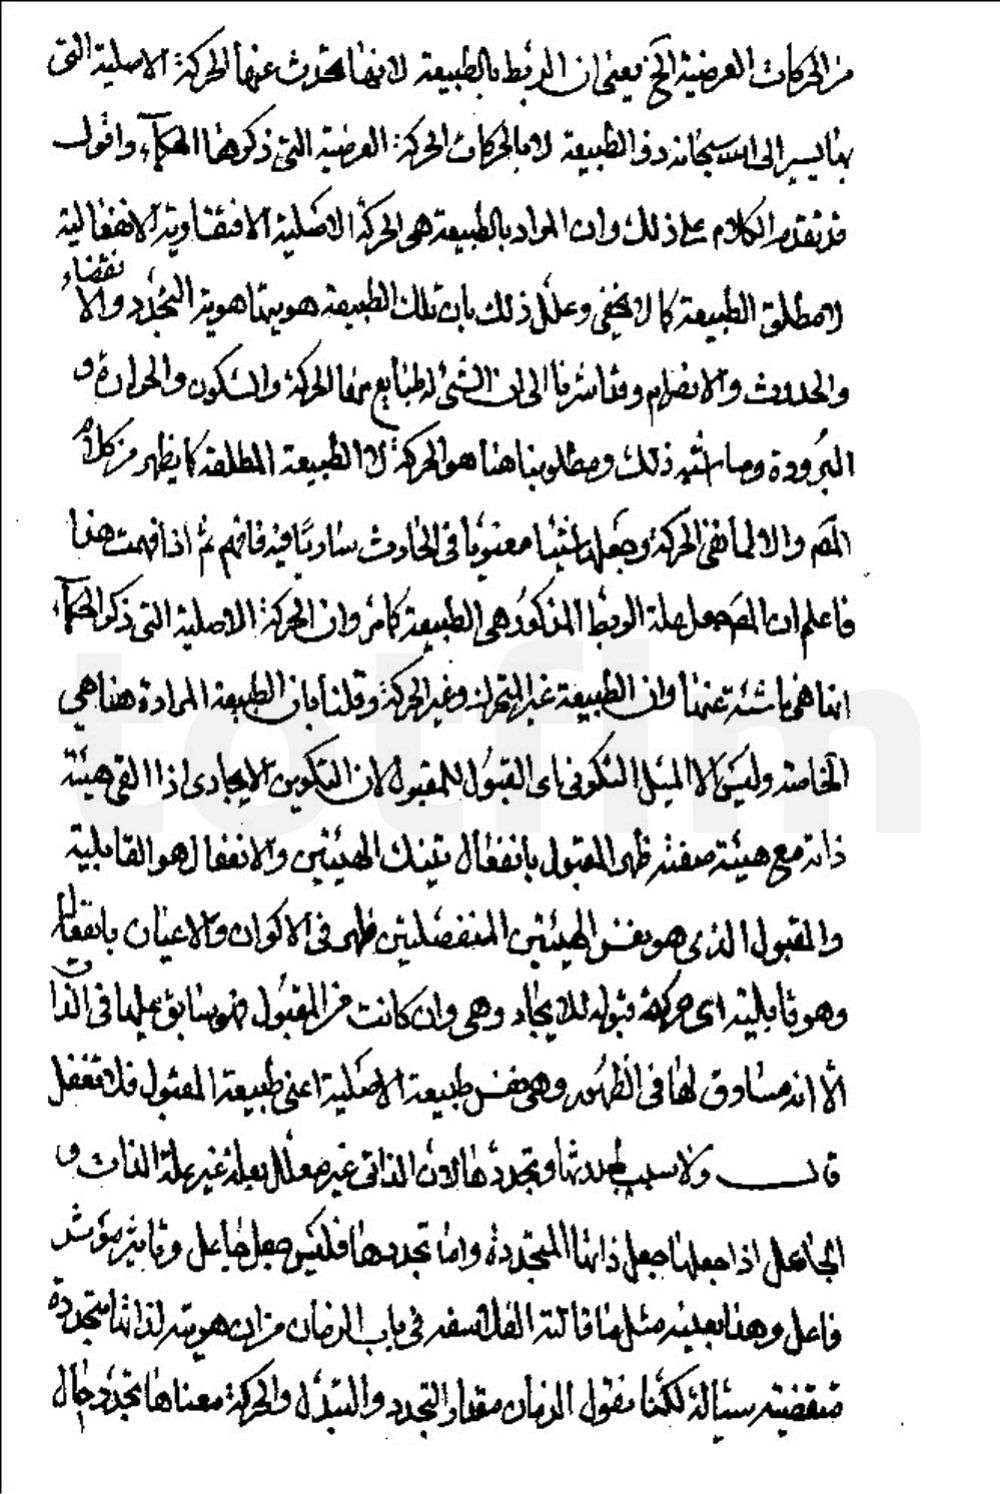 من الحركات العرضية الخ يعني ان الربط بالطبيعة لانها تحدث عنها الحركة الاصلية التي
بها يسير الى الله سبحانه ذو الطبيعة لا بالحركات الحركة العرضية التي ذكرها الحكماء واقول
قد تقدم الكلام على ذلك وان المراد بالطبيعة هي الحركة الاصلية الافتقارية الانفعالية
لا مطلق الطبيعة كما لا يخفى وعلل ذلك بان تلك الطبيعة هويتها هوية التجدد والا
نقضاء
والحدوث والانصرام وقد اشرنا الى ان الشيء له طبايع منها الحركة والسكون والحرارة و
البرودة وما اشبه ذلك ومطلوبنا هنا هو الحركة لا الطبيعة المطلقة كما يظهر من كلام
المص والا لما نفى الحركة وجعلها شيئا معنويا في الحادث ساريا فيه فافهم ثم اذا فهمت هذا
فاعلم ان المص جعل علة الربط المذكور هي الطبيعة كما مر وان الحركة الاصلية التي ذكر الحكماء
انما هي ناشئة عنها وان الطبيعة غير التحرك وغير الحركة وقلنا بان الطبيعة المرادة هنا هي
الخاصة وليس الا الميل التكوني اي القبول للمقبول لان التكوين الايجادي اذا القى هيئة
ذاته مع هيئة صفته ظهر المقبول بانفعال تينك الهيئتين والانفعال هو القابلية
والمقبول الذي هو نفس الهيئتين المنفصلتين ظهر في الاكوان والاعيان بانفعاله
وهو قابليته اي حركة قبوله للايجاد وهي وان كانت من المقبول فهو سابق عليها في الذات
الا انه مساوق لها في الظهور وهي نفس طبيعة الاصلية اعني طبيعة المقبول فلا تغفل
قال ولا سبب لحدوثها وتجددها لان الذاتي غير معلل بعلة غير علة الذات و
الجاعل اذا جعلها جعل ذاتها المتجددة واما تجددها فليس جعل جاعل وتاثير مؤثر
فاعل وهذا بعينه مثل ما قالته الفلاسفة في باب الزمان من ان هويته لذاتها متجددة
متقضية سيالة لكنا نقول الزمان مقدار التجدد والتبدل والحركة معناها تجدد حال
totfim